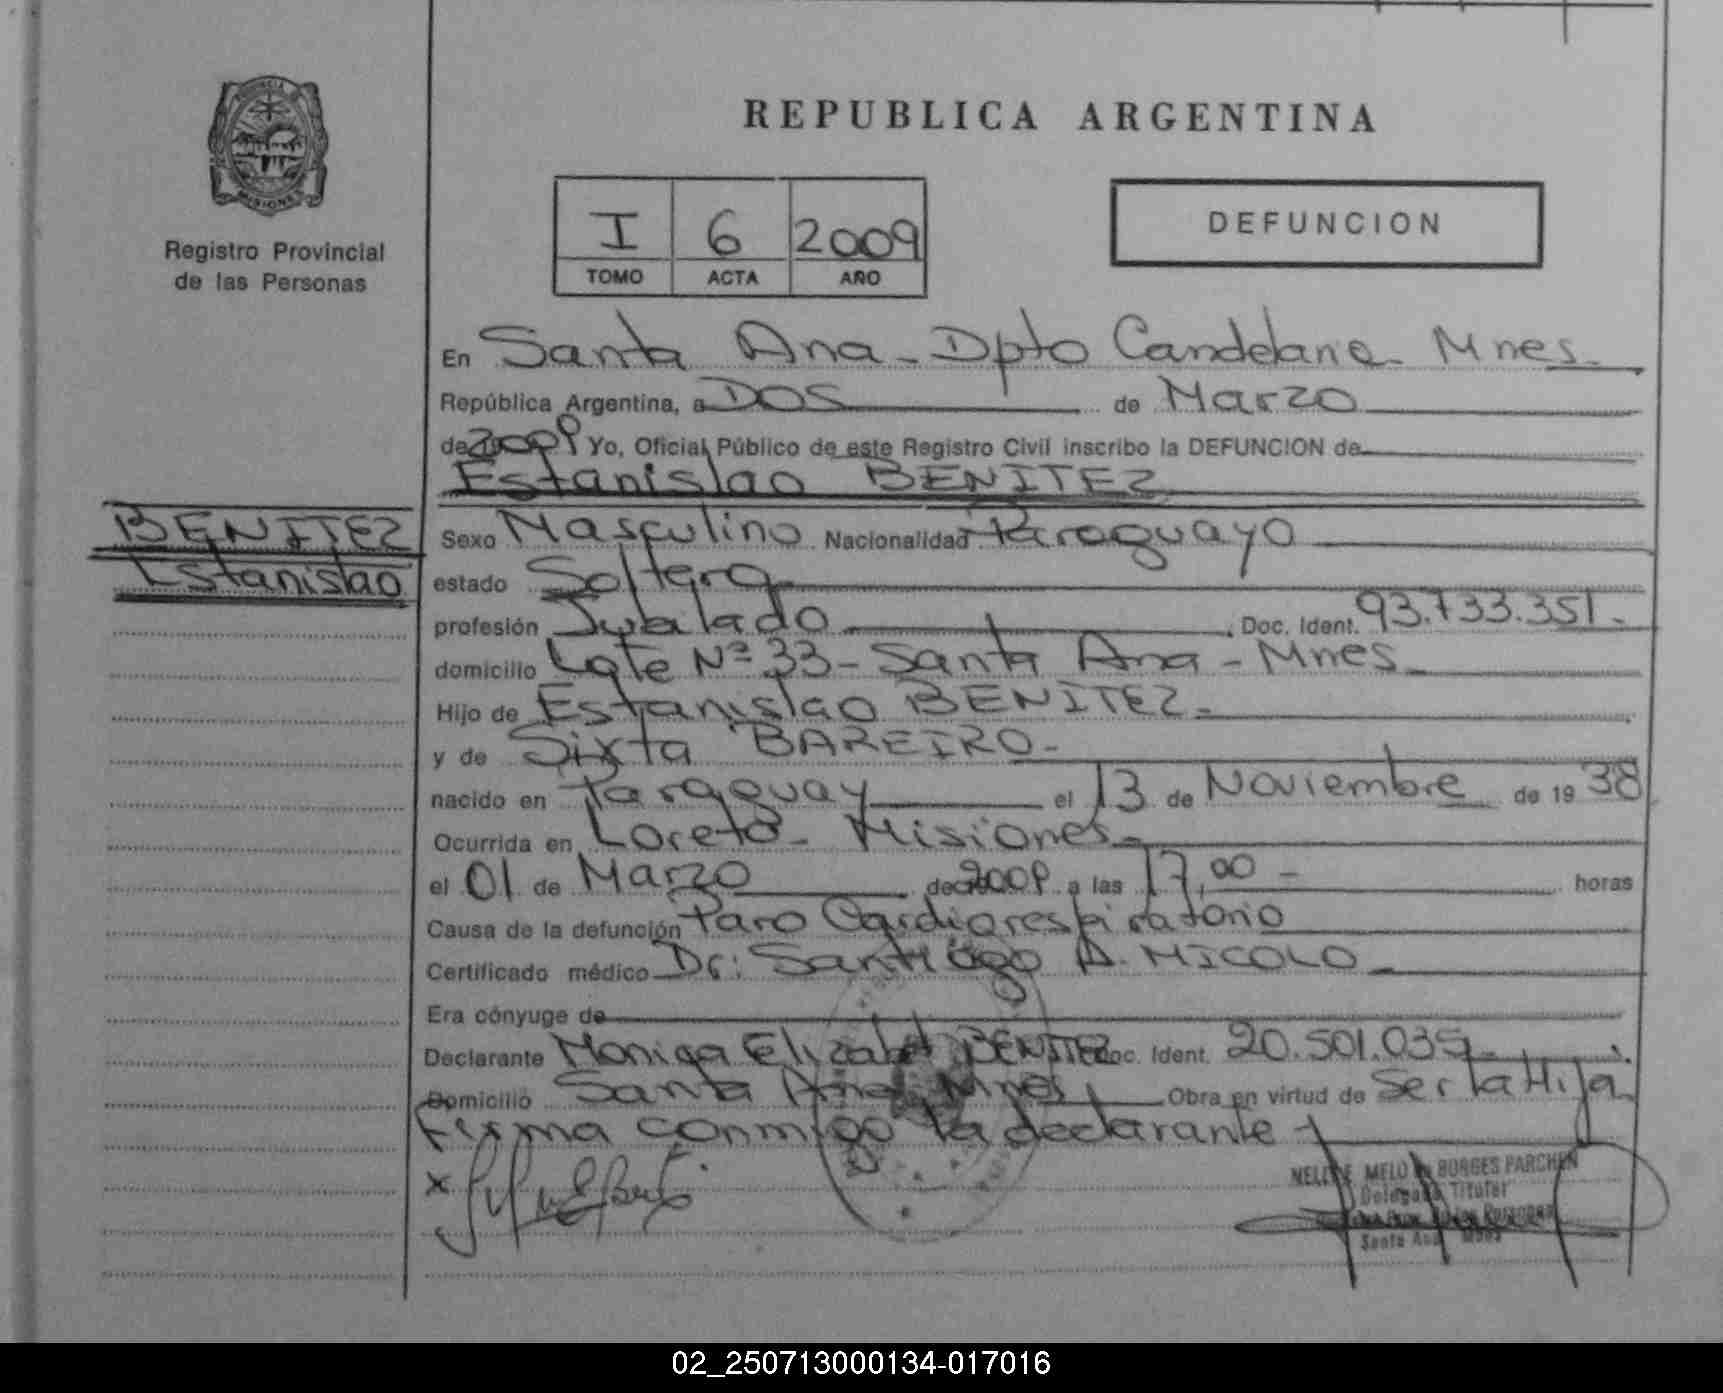 PROVINCIA DE
MISIONES
Registro Provincial
de las Personas
REPUBLICA ARGENTINA
I 6 2009
TOMO ACTA AÑO
DEFUNCION
En Santa Ana - Dpto Candelaria - Mnes.
República Argentina, a DOS de Marzo
de 2009 Yo, Oficial Público de este Registro Civil inscribo la DEFUNCION de
Estanislao BENITEZ
BENITEZ
Estanislao
Sexo Masculino Nacionalidad Paraguayo
estado Soltero
profesión Jubilado Doc. Ident. 93.733.351.-
domicilio Lote Nº 33 - Santa Ana - Mnes
Hijo de Estanislao BENITEZ.-
y de Sixta BAREIRO-
nacido en Paraguay el 13 de Noviembre de 19 38
Ocurrida en Loreto - Misiones-
el 01 de Marzo de 2009 a las 17,00 - horas
Causa de la defunción Paro Cardiorespiratorio
Certificado médico Dr: Santiago A. MICOLO -
Era cónyuge de
Declarante Moniga Elizabet BENITEZ Doc. Ident. 20.501.035-
Domicilio Santa Ana Mnes Obra en virtud de Ser la Hija
Firma conmigo la declarante -
x
MELO BORGES PARCHEN
Delegada Titular
Santa Ana Mnes
02_250713000134-017016